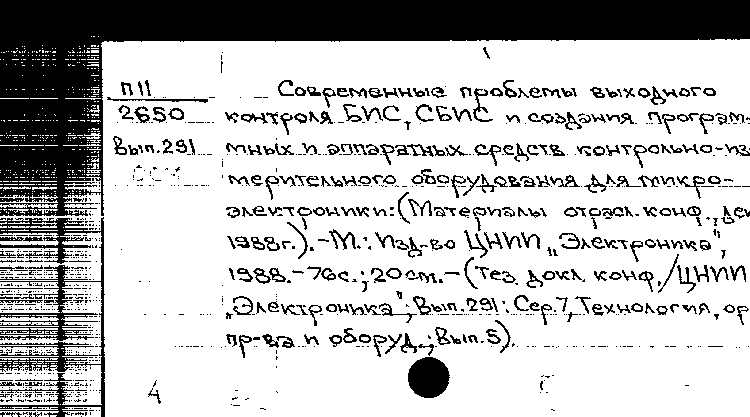 П11
2650
Вып.291
Современные проблемы выходного
контроля БИС, СБИС и создания програм-
мных и аппаратных средств контрольно-из
мерительного оборудования для микро-
электроники: (Материалы отрасл. конф.,
1988г.).-М.: Изд-во ЦНИИ „Электроника",
1988.-76с.; 20см.-(Тез. докл. конф./ЦНИИ
„Электроника"; Вып.291: Сер.7, Технология, ор
пр-ва и оборуд.; Вып.5).